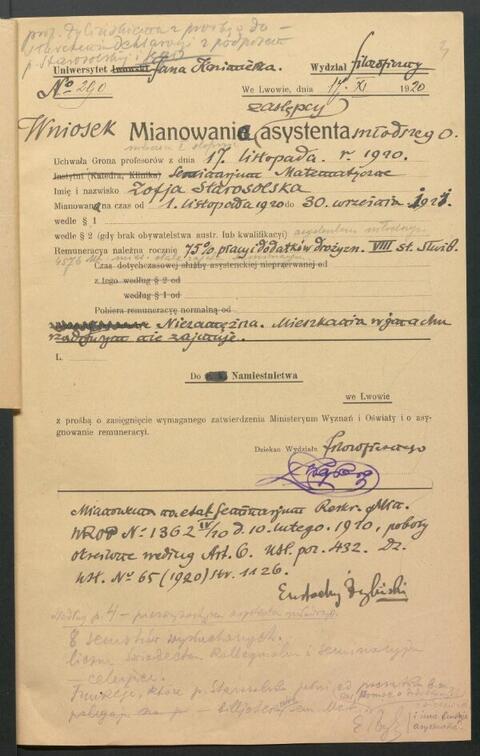 prof. Żylińskiemu z prośbą do-
p. Starosolskiej
Uniwersytet Lwowski Jana Kazimierza Wydział filozoficzny
No 290 We Lwowie, dnia 17 XI 1920
zastępcy
Wniosek Mianowania asystenta młodszego.
Uchwała Grona profesorów z dnia 17. listopada. r. 1920.
Instytut (Katedra, Klinika) Seminarjum Matematyczne
Imię i nazwisko Zofja Starosolska
Mianowana na czas od 1. listopada 1920 do 30. września 1921.
wedle § 1
wedle § 2 (gdy brak obywatelstwa austr. lub kwalifikacyi)
Remuneracya należna rocznie 75% płacy i dodatków drożyźn. VIII st. służb.
Czas dotychczasowej służby asystenckiej nieprzerwanej od
z tego według § 2 od
według § 1 od
Pobiera remuneracyę normalną od
Niezamężna. Mieszkania w gmachu
rządowym nie zajmuje.
L.
Do Namiestnictwa
we Lwowie
z prośbą o zasięgnięcie wymaganego zatwierdzenia Ministeryum Wyznań i Oświaty i o asy-
gnowanie remuneracyi.
Dziekan Wydziału filozoficznego
Mianowana na etat Seminarjum Reskr. Min.
WROP No 1362 IV/20 d. 10. lutego. 1920, pobory
określone według Art. 6. Ust. poz. 432. Dz.
Ust. No 65 (1920) str. 1126.
Eustachy Żyliński
Według p. 4 - asystenta młodszego
8 semestrów wysłuchanych.
liczne świadectwa kollegjalne i seminaryjne
- celujące.
Funkcje, które p. Starosolska pełni od
polegają na
asystenta.